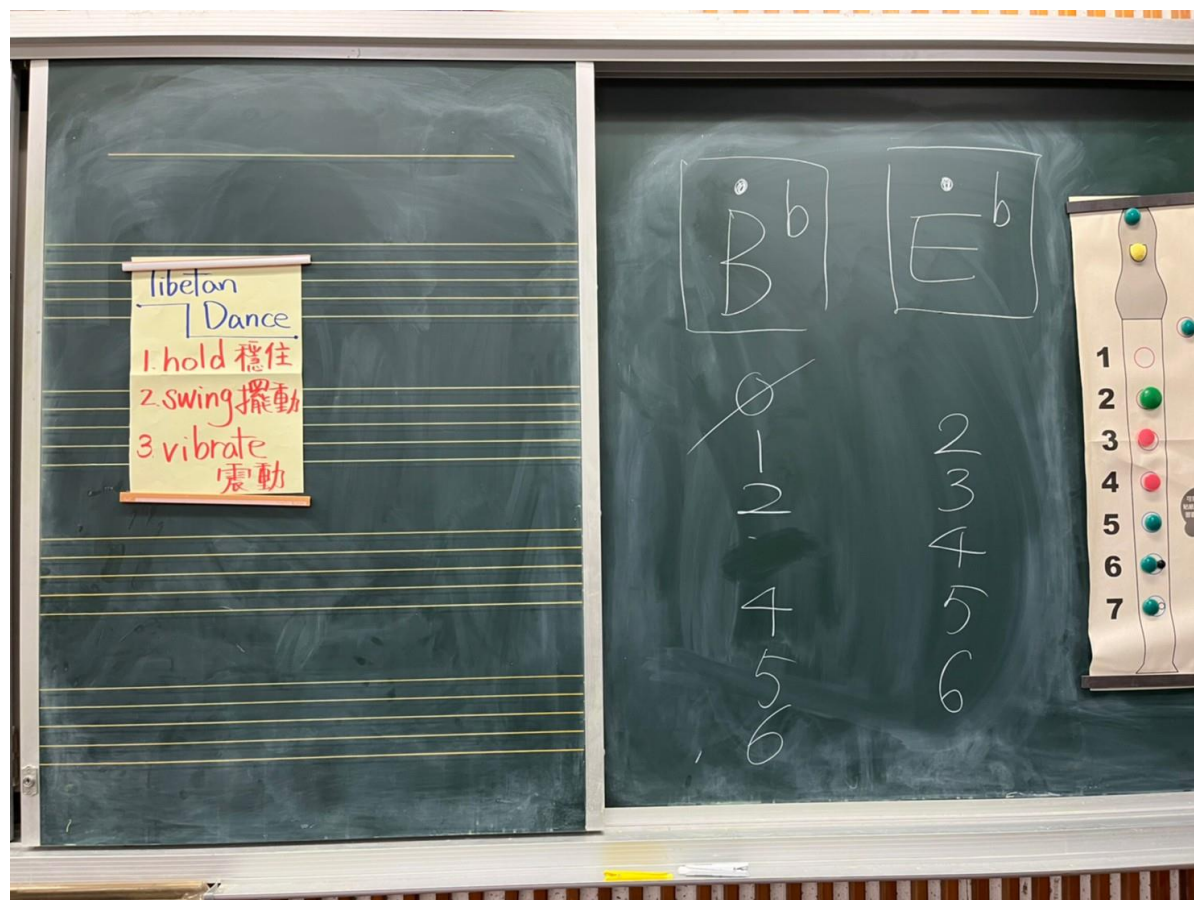 Tibetan
Dance
1. hold 穩住
2. swing 擺動
3 vibrate
震動
B b
E b
0
1
2
4
5
6
2
3
4
5
6
1
2
3
4
5
6
7